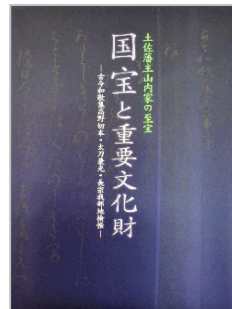 土佐藩主山内家の至宝
国宝と重要文化財
―古今和歌集高野切本・太刀兼光・長宗我部地検帳―